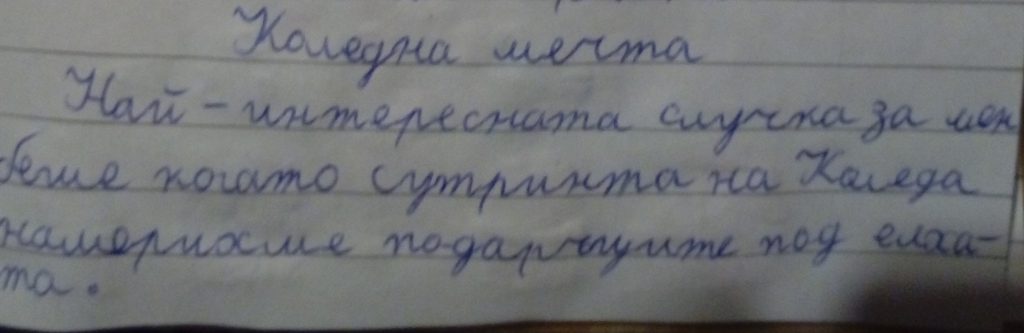 Коледна мечта
Най-интересната случка за мен
беше когато сутринта на Коледа
намерихме подаръците под елха-
та.